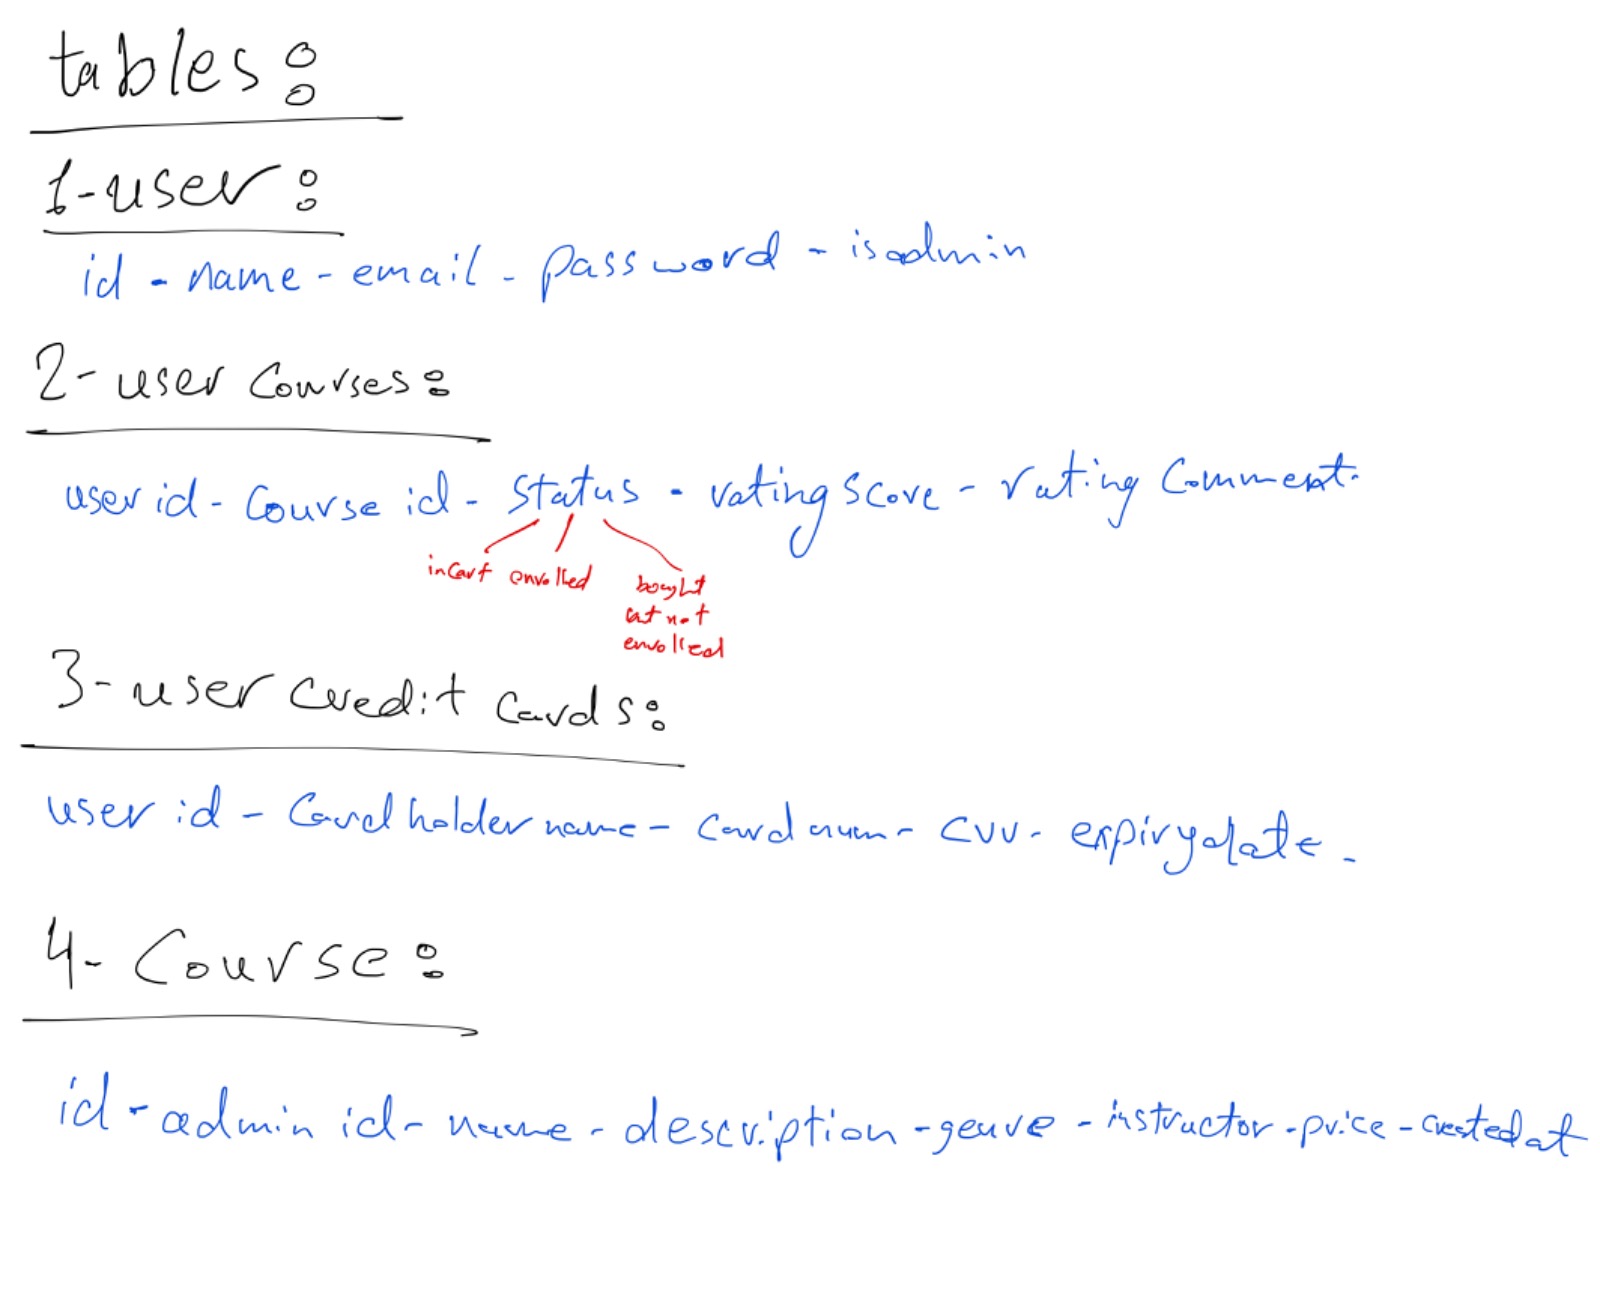 tables:
1-user:
id - name - email - password - isadmin
2- user Courses:
user id - Course id - Status - rating score - rating Comment.
incart enrolled bought
but not
enrolled
3- user credit cards:
user id - Cardholder name - card num - cvv - expirydate -
4- Course:
id - admin id - name - description - genre - instructor - price - createdat